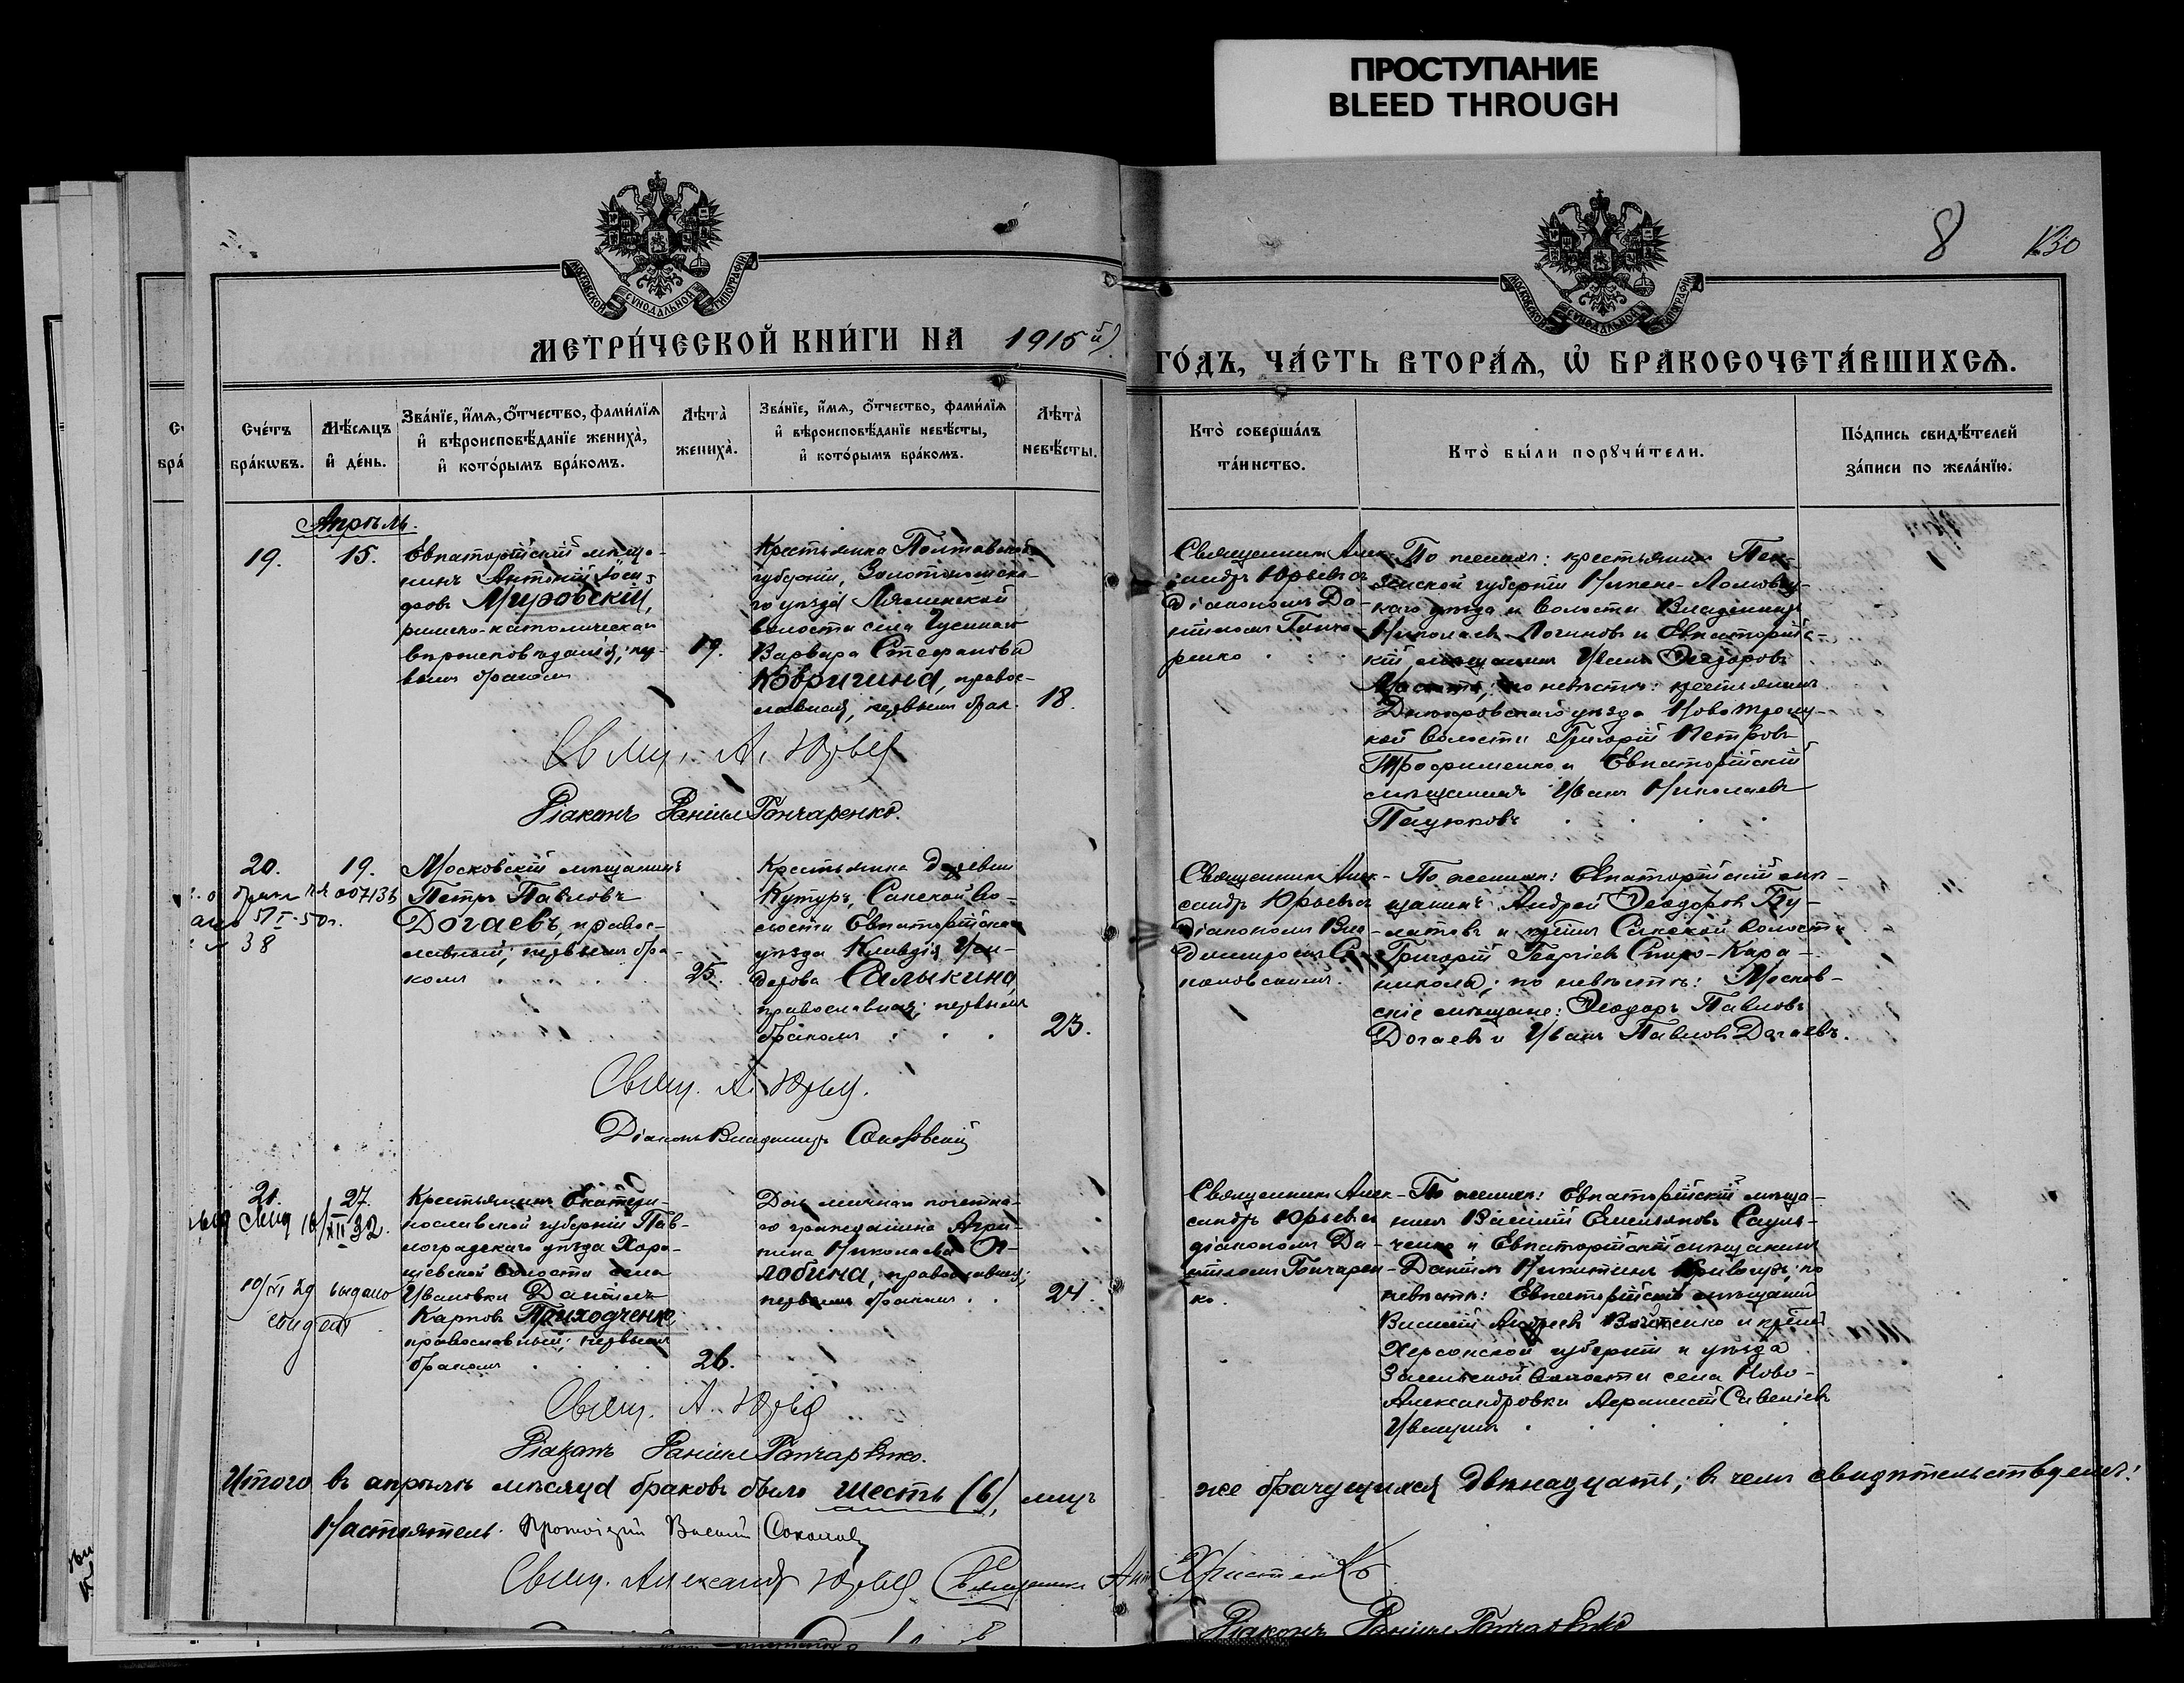 ПРОСТУПАНИЕ
BLEED THROUGH
8 130
МОСКОВСКОЙ СѴНОДАЛЬНОЙ ТИПОГРАФІИ
МОСКОВСКОЙ СѴНОДАЛЬНОЙ ТИПОГРАФІИ
МЕТРИ́ЧЕСКОЙ КНИ́ГИ НА 1915й
ГО́ДЪ, ЧА́СТЬ ВТОРА́Ѧ, Ѽ БРАКОСОЧЕТА́ВШИХСѦ.
Сче́тъ
бра́кѡвъ.
Мѣ́сѧцъ
и҆ де́нь.
Зва́нїе, и҆́мѧ, ѻ҆́тчество, фами́лїѧ
и҆ вѣроисповѣ́данїе жениха̀,
и҆ кото́рымъ бра́комъ.
Лѣта̀
жениха̀.
Зва́нїе, и҆́мѧ, ѻ҆́тчество, фами́лїѧ
и҆ вѣроисповѣ́данїе невѣ́сты,
и҆ кото́рымъ бра́комъ.
Лѣта̀
невѣ́сты.
Кто̀ соверша́лъ
та́инство.
Кто̀ бы́ли порꙋчи́тели.
По́дпись свидѣ́телей
за́писи по жела́нїю.
Апрѣль.
19.
15.
Евпаторійскій мѣща-
нинъ Антоній
Мировскій,
римско-католическаго
вѣроисповѣданія, пер-
вымъ бракомъ
19.
Крестьянка Полтавской
губерніи, Золотоношска-
го уѣзда Лялинской
волости села Гусинаго
Варвара Стефанова
Ковригина, правос-
лавная, первымъ брак.
18.
Священникъ Алек-
сандръ Юрьевъ съ
діакономъ Да-
ніиломъ Гонча-
ренко
По женихѣ: крестьянинъ Пен-
зенской губерніи Нижне-Ломовс-
каго уѣзда и волости Владиміръ
Николаевъ Логиновъ и Евпаторійс-
кій мѣщанинъ Иванъ Ѳеодоровъ
по невѣстѣ: крестьянинъ
Днѣпровскаго уѣзда Новотроиц-
кой волости Григорій Петровъ
Трофименко и Евпаторійскій
мѣщанинъ Иванъ Николаевъ
Пацюковъ
Свящ. А. Юрьев
Діаконъ Даніилъ Гончаренко.
20.
19.
007136
38
Московскій мѣщанинъ
Петръ Павловъ
Догаевъ, правос-
лавный; первымъ бра-
комъ
25.
Крестьянка деревни
Кутуръ, Сакской во-
лости Евпаторійскаго
уѣзда Клавдія Иси-
дорова Салыкина,
православная; первымъ
бракомъ
23.
Священникъ Алек-
сандръ Юрьевъ съ
діакономъ Вла-
диміромъ Со-
коловскимъ.
По женихѣ: Евпаторійскій мѣ-
щанинъ Андрей Ѳеодоровъ Бу-
латовъ и крест. Сакской волости
Григорій Георгіевъ Спиро-Кара-
никола; по невѣстѣ: Москов-
скіе мѣщане: Ѳеодоръ Павловъ
Догаевъ и Иванъ Павловъ Догаевъ.
Свящ. А. Юрьев.
Діаконъ Владиміръ Соколовскій
21.
27.
выдано
Крестьянинъ Екатери-
нославской губерніи Пав-
лоградскаго уѣзда Хоро-
шевской волости села
Ивановки Даніилъ
Карповъ Приходченко,
православный; первымъ
бракомъ
26.
Дочь личнаго почетна-
го гражданина Агри-
пина Николаева
Лобина, православная;
первымъ бракомъ
24.
Священникъ Алек-
сандръ Юрьевъ съ
діакономъ Да-
ніиломъ Гончарен-
ко.
По женихѣ: Евпаторійскій мѣща-
нинъ Василій Емельяновъ Сауль-
ченко и Евпаторійскій мѣщанинъ
Даніилъ Никитинъ Криворудъ; по
невѣстѣ: Евпаторійскій мѣщанинъ
Василій Андреевъ Войтенко и крест.
Херсонской губерніи и уѣзда
Засельской волости села Ново-
Александровки Аѳанасій Савеліевъ
Иващукъ
Свящ. А. Юрьев
Діаконъ Даніилъ Гончаренко.
Итого въ апрѣлѣ мѣсяцѣ браковъ было шесть (6), лицъ
же брачущихся двѣнадцать; въ чемъ свидѣтельствуемъ:
Настоятель Протоіерей Василій Соколовъ
Свящ. Александръ Юрьев Священникъ
Діаконъ Даніилъ Гончаренко